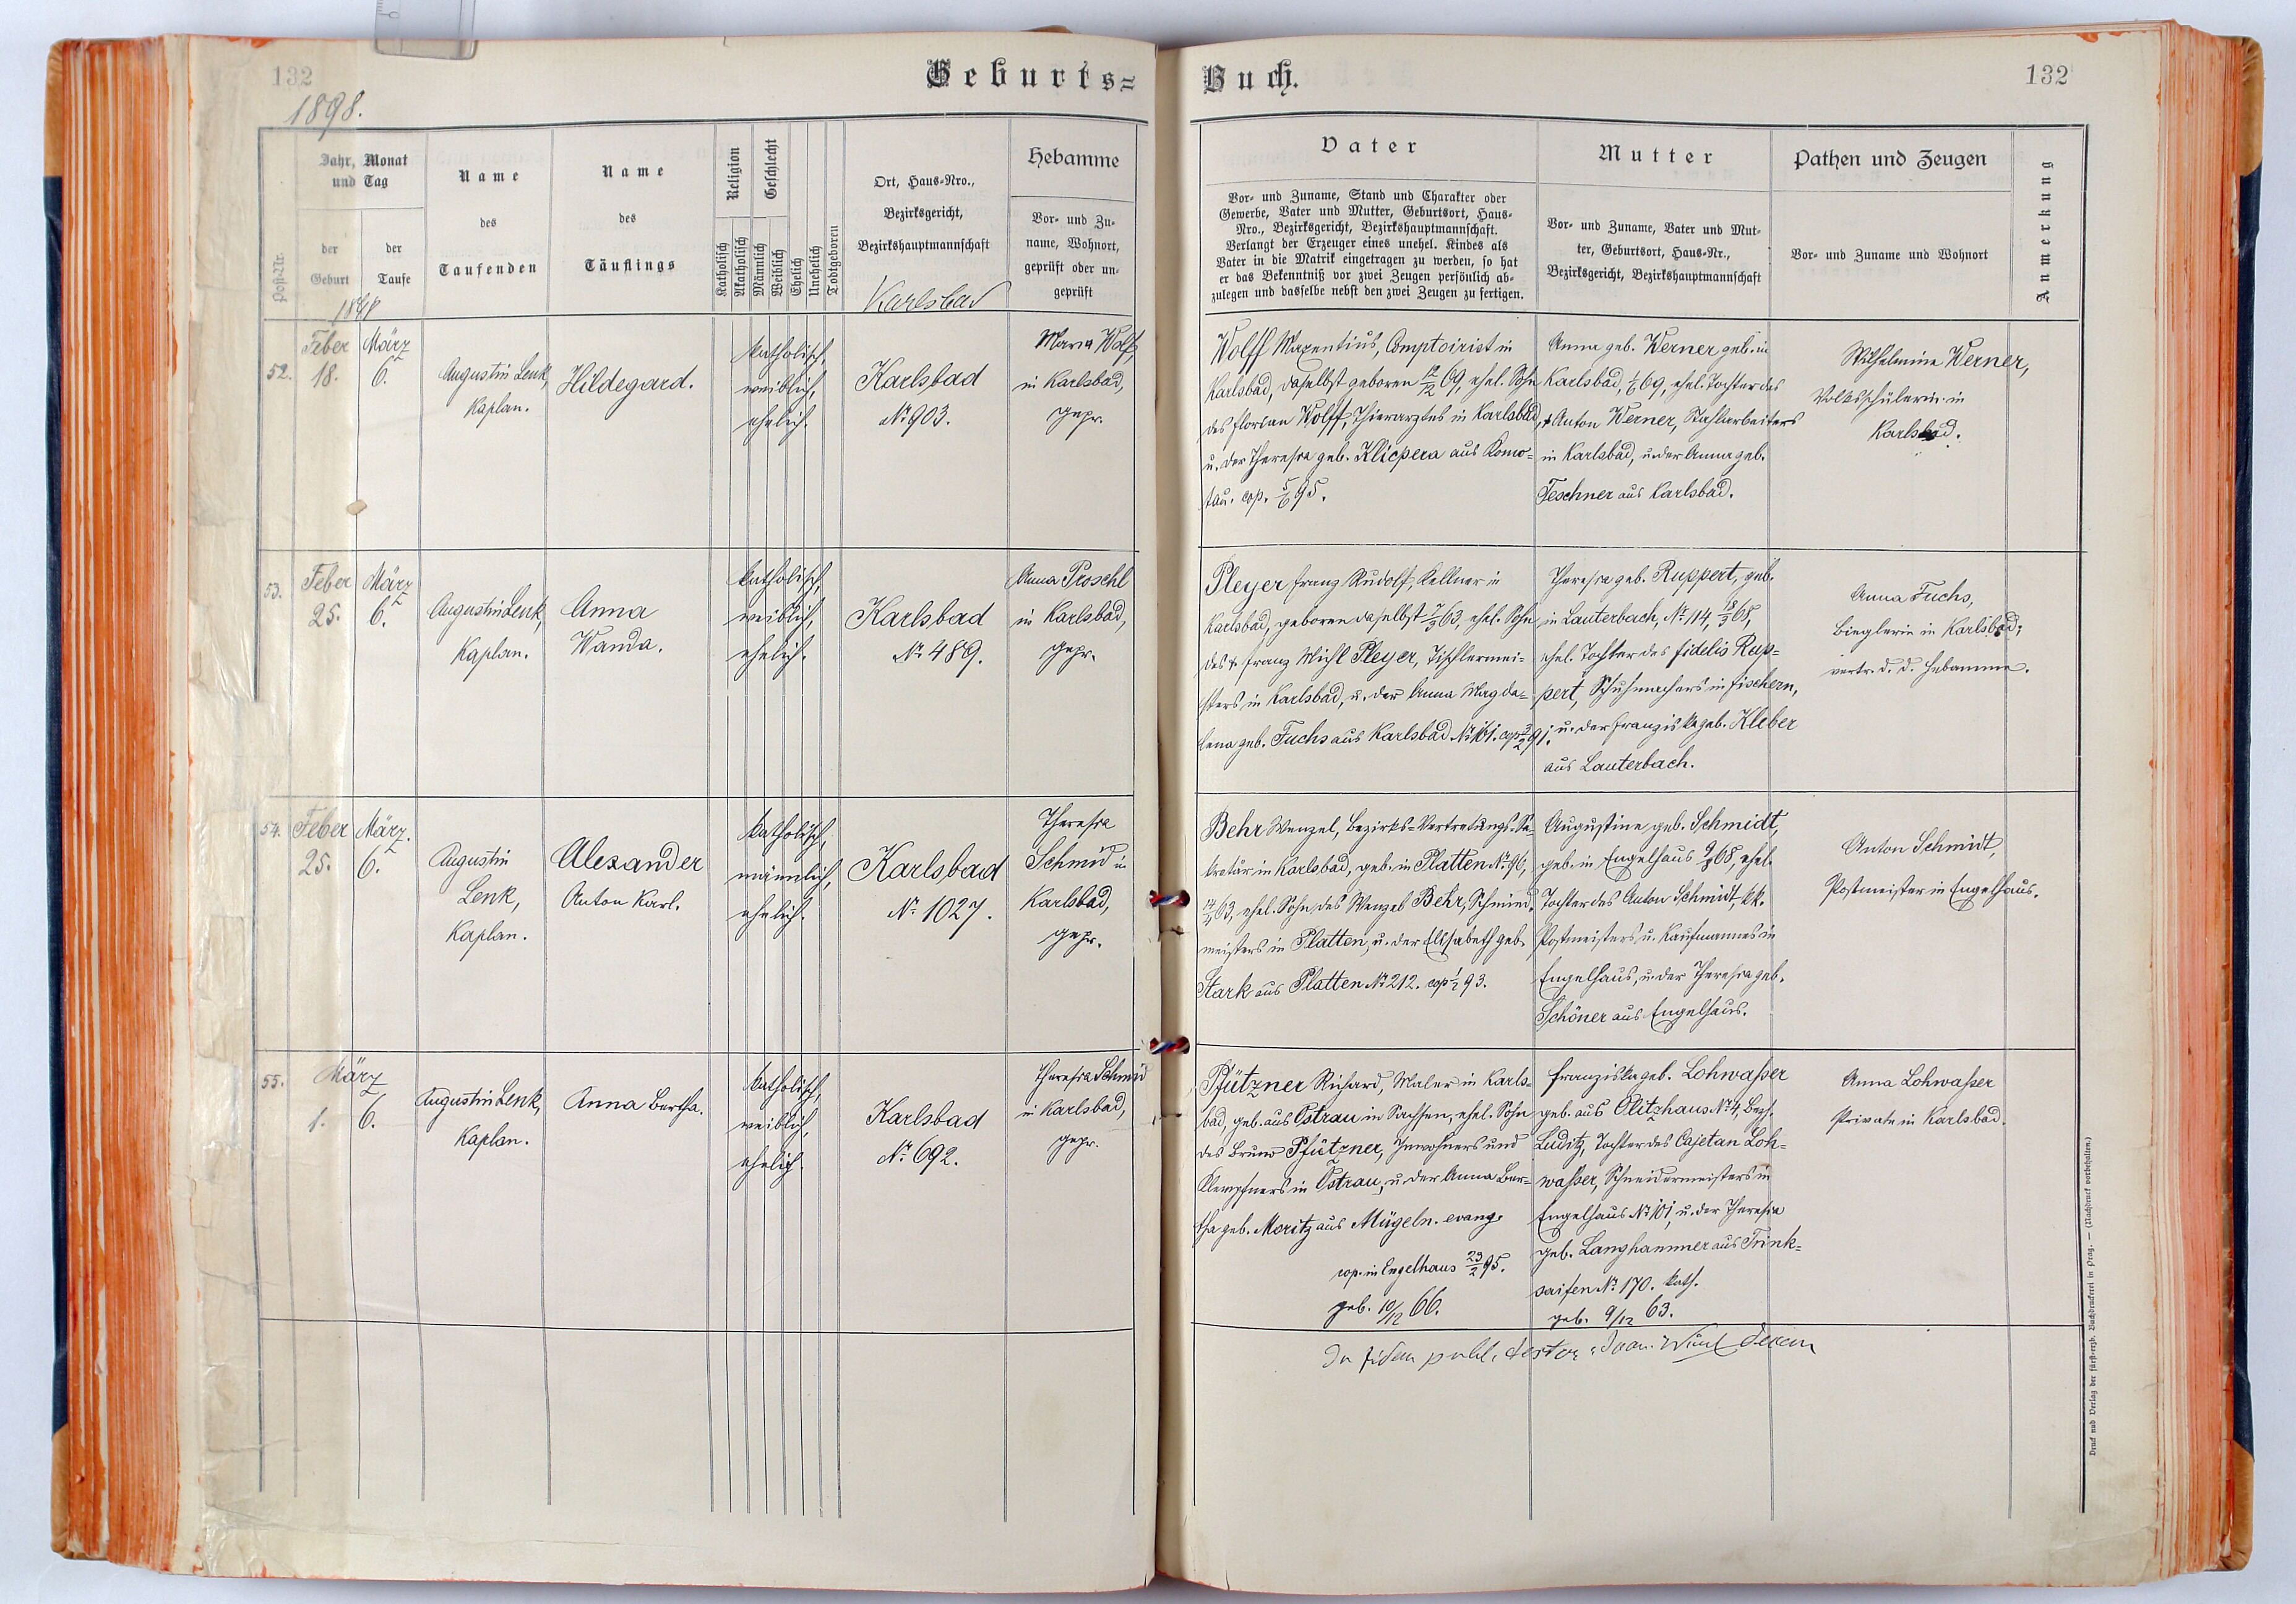 132
Geburts=
1898.
Post-Nr.
Jahr, Monat
und Tag
der
Geburt
der
Taufe
1898
Name
des
Taufenden
Name
des
Täuflings
Religion
Geschlecht
Katholisch
Akatholisch
Männlich
Weiblich
Ehelich
Unehelich
Todtgeboren
Ort, Haus-Nro.,
Bezirksgericht,
Bezirkshauptmannschaft
Karlsbad
Hebamme
Vor- und Zu-
name, Wohnort,
geprüft oder un-
geprüft
52.
Feber
18.
März
6.
Augustin Lenk,
Kaplan.
Hildegard.
katholisch,
weiblich,
ehelich.
Karlsbad
No 903.
Maria Wolf,
in Karlsbad,
gepr.
53.
Feber
25.
März
6.
Augustin Lenk,
Kaplan.
Anna
Wanda.
katholisch,
weiblich,
ehelich.
Karlsbad
No 489.
Anna Proschl
in Karlsbad,
gepr.
54.
Feber
25.
März.
6.
Augustin
Lenk,
Kaplan.
Alexander
Anton Karl.
katholisch,
männlich,
ehelich.
Karlsbad
No 1027.
Theresia
Schmid in
Karlsbad,
gepr.
55.
März
1.
6.
Augustin Lenk,
Kaplan.
Anna Bertha.
katholisch,
weiblich,
ehelich.
Karlsbad
No 692.
Theresia Schmid
in Karlsbad,
gepr.
Buch.
132
Vater
Vor- und Zuname, Stand und Charakter oder
Gewerbe, Vater und Mutter, Geburtsort, Haus-
Nro., Bezirksgericht, Bezirkshauptmannschaft.
Verlangt der Erzeuger eines unehel. Kindes als
Vater in die Matrik eingetragen zu werden, so hat
er das Bekenntniß vor zwei Zeugen persönlich ab-
zulegen und dasselbe nebst den zwei Zeugen zu fertigen.
Mutter
Vor- und Zuname, Vater und Mut-
ter, Geburtsort, Haus-Nr.,
Bezirksgericht, Bezirkshauptmannschaft
Pathen und Zeugen
Vor- und Zuname und Wohnort
Anmerkung
Wolff Maxentius, Comptoirist in
Karlsbad, daselbst geboren 12/2 69, ehel. Sohn
des Florian Wolff, Thierarztes in Karlsbad,
u. der Theresia geb. Klicpera aus Komo=
tau. cop. 5/6 95.
Anna geb. Werner geb. in
Karlsbad, 1/6 69, ehel. Tochter des
† Anton Werner, Stahlarbeiters
in Karlsbad, u. der Anna geb.
Teschner aus Karlsbad.
Wilhelmine Werner,
Volksschülerin in
Karlsbad.
Pleyer Franz Rudolf, Kellner in
Karlsbad, geboren daselbst 7/3 63, ehel. Sohn
des † Franz Michl Pleyer, Tischlermei=
sters in Karlsbad, u. der Anna Magda=
lena geb. Fuchs aus Karlsbad No 161. cop 3/2 91.
Theresia geb. Ruppert, geb.
in Lauterbach, No 114, 18/3 68,
ehel. Tochter des Fidelis Rup=
pert, Schuhmachers in Fischern,
u. der Franziska geb. Kleber
aus Lauterbach.
Anna Fuchs,
Bieglerin in Karlsbad;
vertr. d. d. Hebamme.
Behr Wenzel, Bezirks=Vertretungs=Se=
kretär in Karlsbad, geb. in Platten No 96,
14/4 63, ehel. Sohn des Wenzel Behr, Schmied=
meisters in Platten, u. der Elisabeth geb.
Stark aus Platten No 212. cop 1/2 93.
Augustine geb. Schmidt,
geb. in Engelhaus 9/8 68, ehel.
Tochter des Anton Schmidt, kk.
Postmeisters u. Kaufmannes in
Engelhaus, u. der Theresia geb.
Schöner aus Engelhaus.
Anton Schmidt,
Postmeister in Engelhaus.
Pfützner Richard, Maler in Karls=
bad, geb. aus Ostrau in Sachsen, ehel. Sohn
des Bruno Pfützner, Inwohners und
Klempners in Ostrau, u der Anna Ber=
tha geb. Moritz aus Mügeln. evang.
cop. in Engelhaus 23/2 95.
geb. 10/12 66.
Franziska geb. Lohwasser
geb. aus Olitzhaus No 4, Bezh.
Luditz, Tochter des Cajetan Loh=
wasser, Schneidermeisters in
Engelhaus No 101, u. der Theresia
geb. Langhammer aus Trink=
saifen No 170. kath.
geb. 9/12 63.
Anna Lohwasser
Private in Karlsbad.
In fidem publ. testor
Druck und Verlag der fürst-erzb. Buchdruckerei in Prag. — (Nachdruck vorbehalten.)